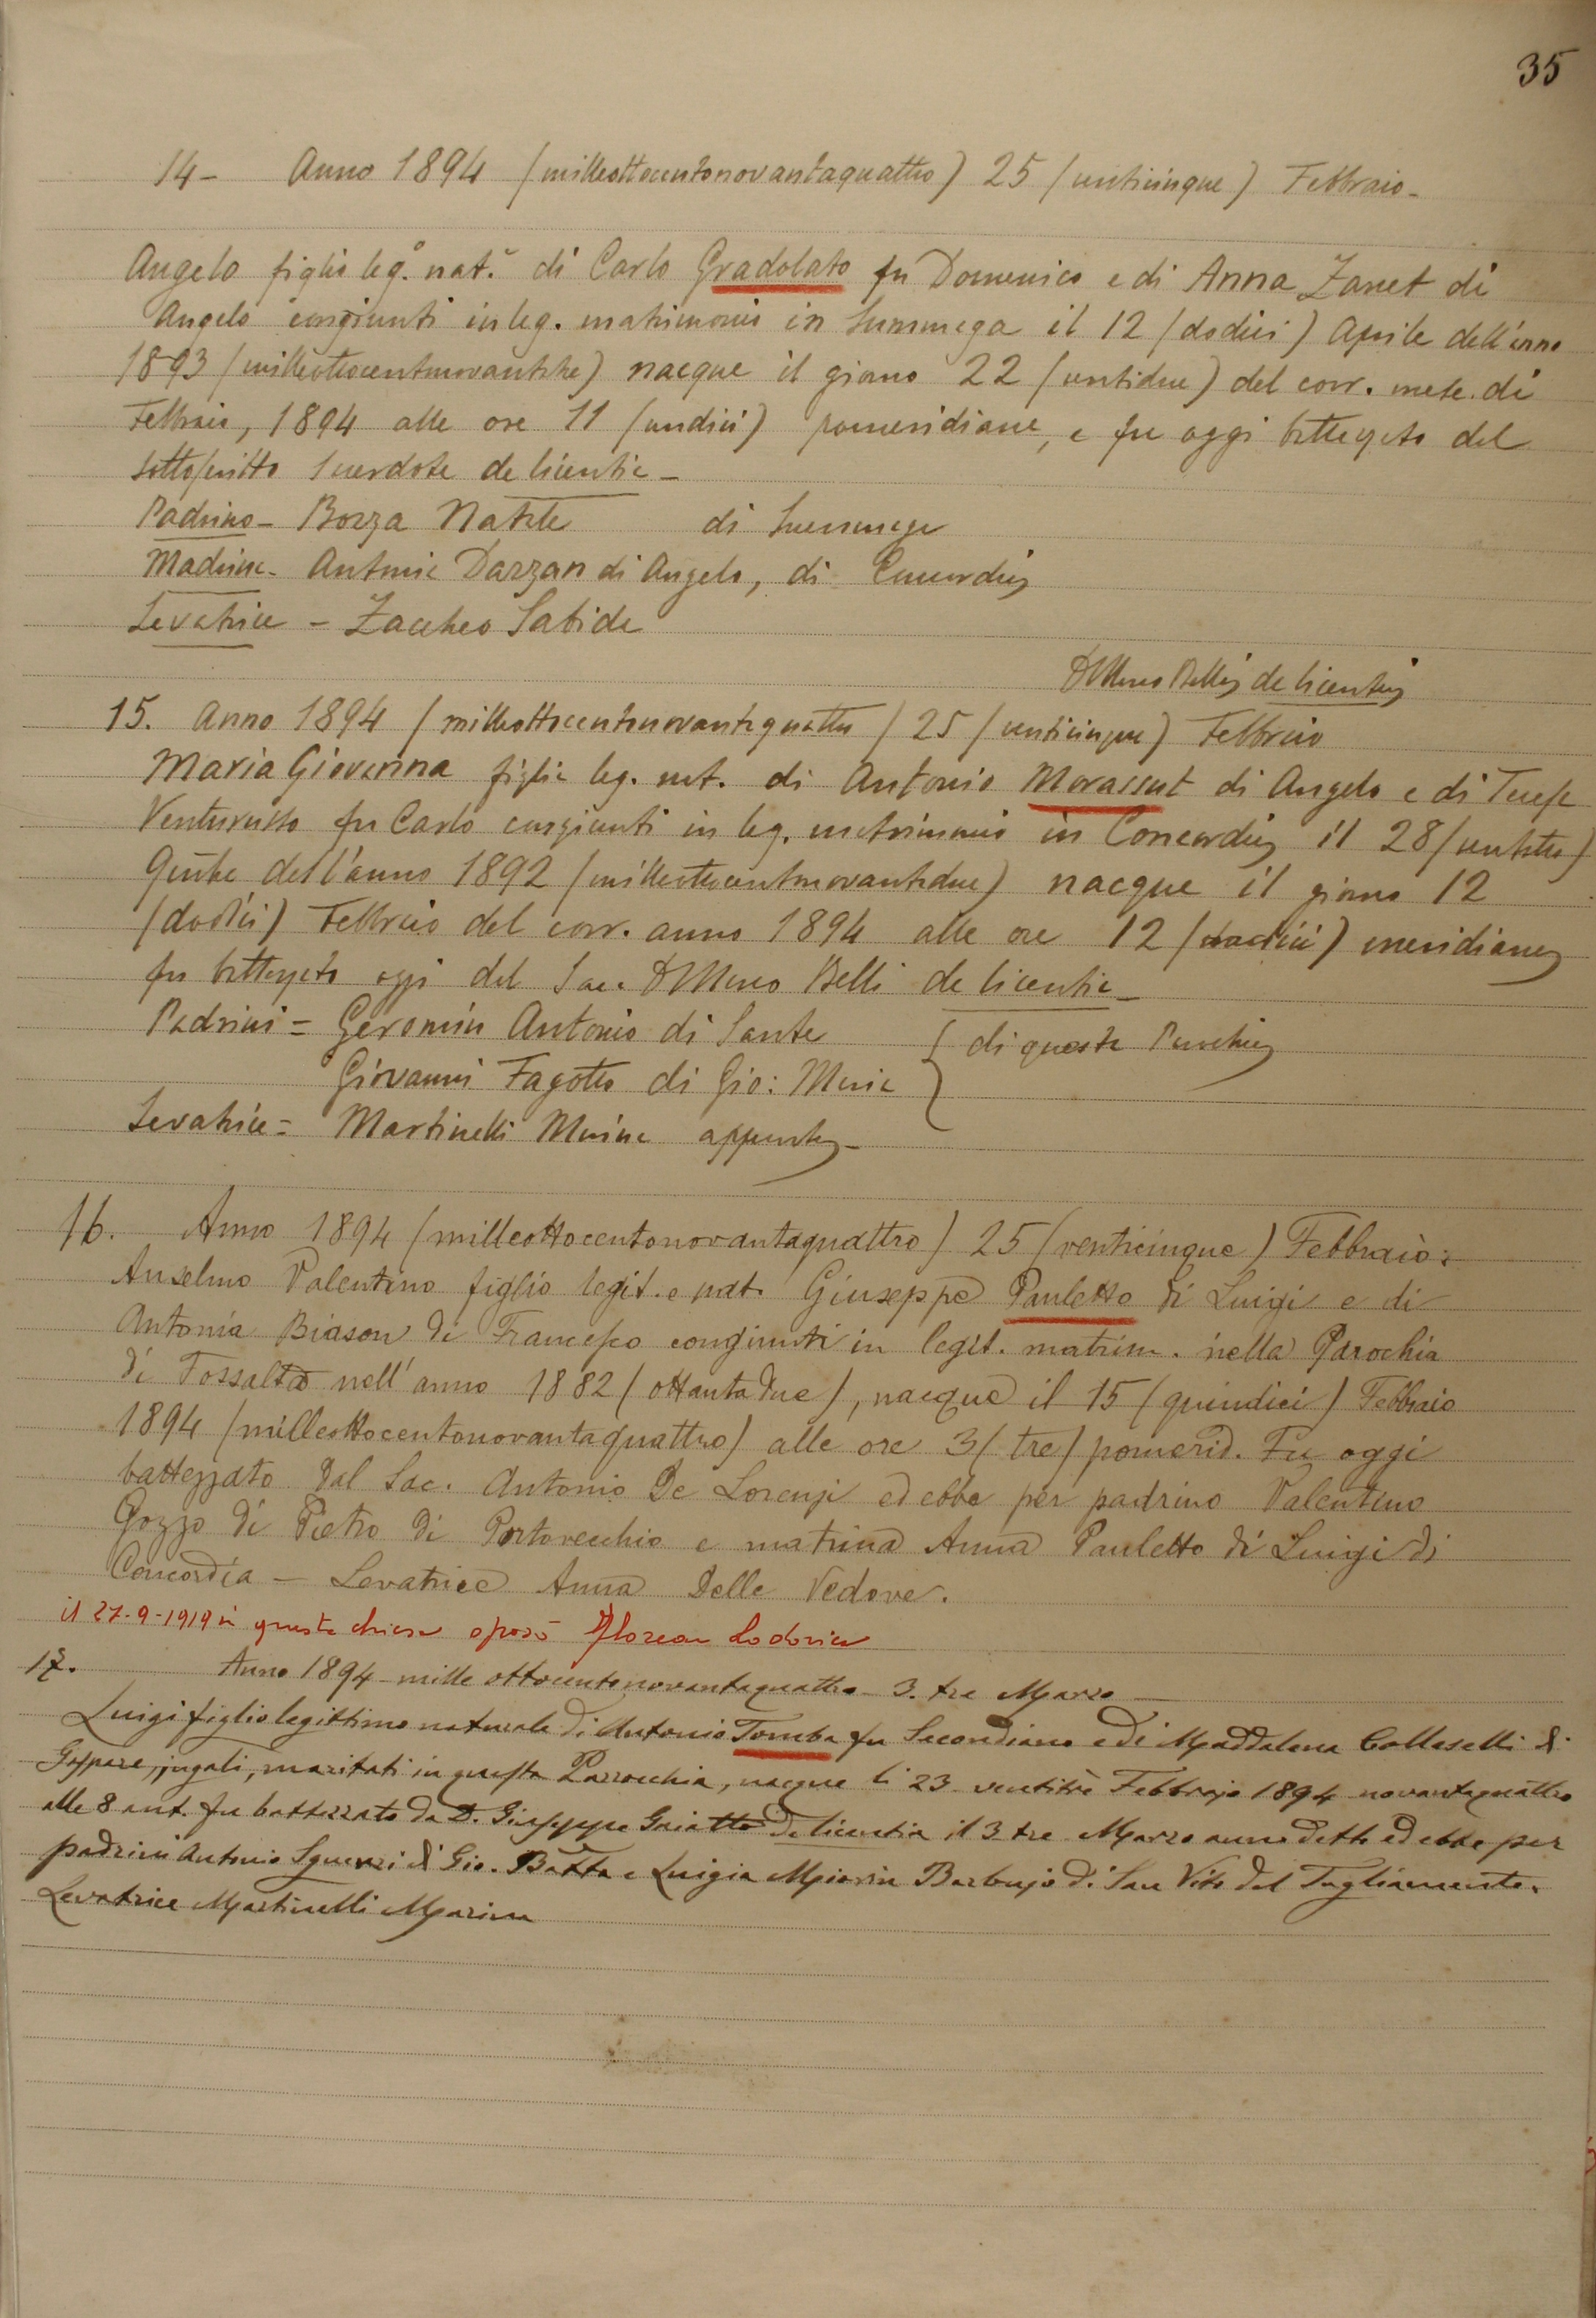 35
14- Anno 1894 (milleottocentonovantaquattro) 25 (venticinque) Febbraio-
Angelo figlio leg.º nat.e di Carlo Gradolato fu Domenico e di Anna Zanet di
Angelo congiunti in leg. matrimonio in Summaga il 12 (dodici) Aprile dell'anno
1893 (milleottocentonovantatre) nacque il giorno 22 (ventidue) del corr. mese di
Febbraio, 1894 alle ore 11 (undici) pomeridiane, e fu oggi battezzato dal
sottoscritto Sacerdote de licentia-
Padrino- Bozza Natale di Summaga
Madrina- Antonia Darzan di Angelo, di Concordia
Levatrice - Zaccheo Sabida
Belli de licentia
15. Anno 1894 (milleottocentonovantaquattro) 25 (venticinque) Febbraio
Maria Giovanna figlia leg. nat. di Antonio Morassut di Angelo e di Teresa
Venturusso fu Carlo congiunti in leg. matrimonio in Concordia il 28 (ventotto)
dell'anno 1892 (milleottocentonovantadue) nacque il giorno 12
(dodici) Febbraio del corr. anno 1894 alle ore 12 (dodici) meridiane
fu battezzato oggi dal Sac. D Marco Belli de licentia-
Padrini = Geromin Antonio di Sante { di questa Parochia
Giovanni Fagotto di Gio: Maria
Levatrice = Martinelli Marina approvata-
16. Anno 1894 (milleottocentonovantaquattro) 25 (venticinque) Febbraio:
Anselmo Valentino figlio legit. e nat. Giuseppe Pauletto di Luigi e di
Antonia Biason di Francesco congiunti in legit. matrim. nella Parochia
di Fossalta nell'anno 1882 (ottantadue), nacque il 15 (quindici) Febbraio
1894 (milleottocentonovantaquattro) alle ore 3 (tre) pomerid. Fu oggi
battezzato dal Sac. Antonio De Lorenzi ed ebbe per padrino Valentino
Gozzo di Pietro di Portovecchio e matrina Anna Pauletto di Luigi di
Concordia - Levatrice Anna Delle Vedove.
il 27-9-1919 in questa chiesa sposò Florean Lodovica
17. Anno 1894 mille ottocentonovantaquattro - 3. tre Marzo
Luigi figlio legittimo naturale di Antonio Tomba fu Secondiano e di Maddalena Colleselli di
Gaspare, jugali, maritati in questa Parrocchia, nacque li 23 ventitrè Febbrajo 1894 novantaquattro
alle 8 ant. fu battezzato da D. Giuseppe Gaiatto de licentia il 3 tre Marzo anno detto ed ebbe per
padrini Antonio Sguerzi di Gio. Batta e Luigia Miorin Barbujo di San Vito del Tagliamento.
Levatrice Martinelli Marina